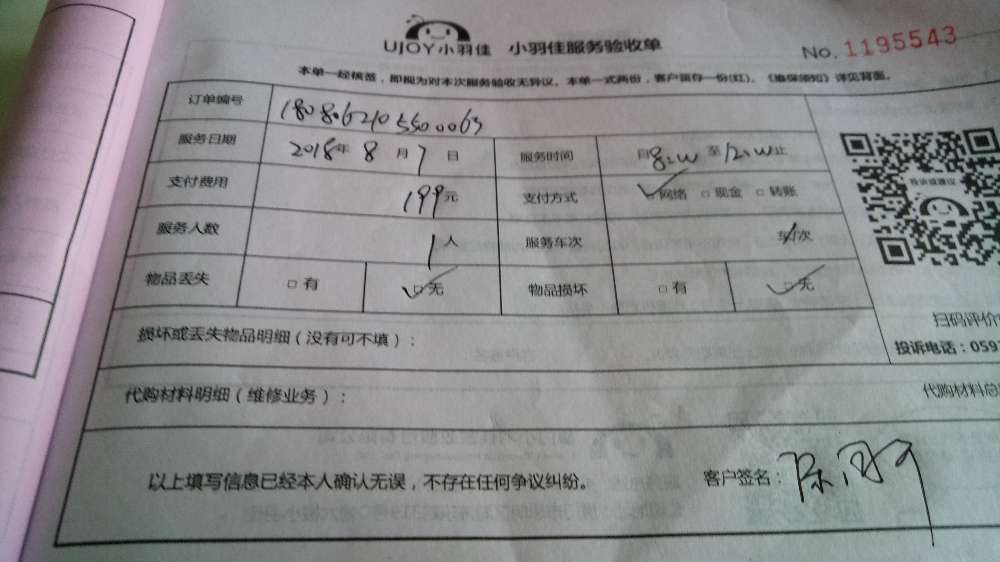 UJOY小羽佳 小羽佳服务验收单 No.1195543
本单一经核签，即视为对本次服务验收无异议。本单一式两份，客户留存一份(红)。《维保须知》详见背面。
订单编号
服务日期 2018年 8月 7日 服务时间 自8:00至12:00止
支付费用 199元 支付方式 ☑网络 □现金 □转账
投诉或建议
服务人数 1人 服务车次 车/次
物品丢失 □有 ☑无 物品损坏 □有 ☑无
扫码评价
损坏或丢失物品明细（没有可不填）： 投诉电话：059
代购材料明细（维修业务）： 代购材料总
以上填写信息已经本人确认无误，不存在任何争议纠纷。 客户签名：